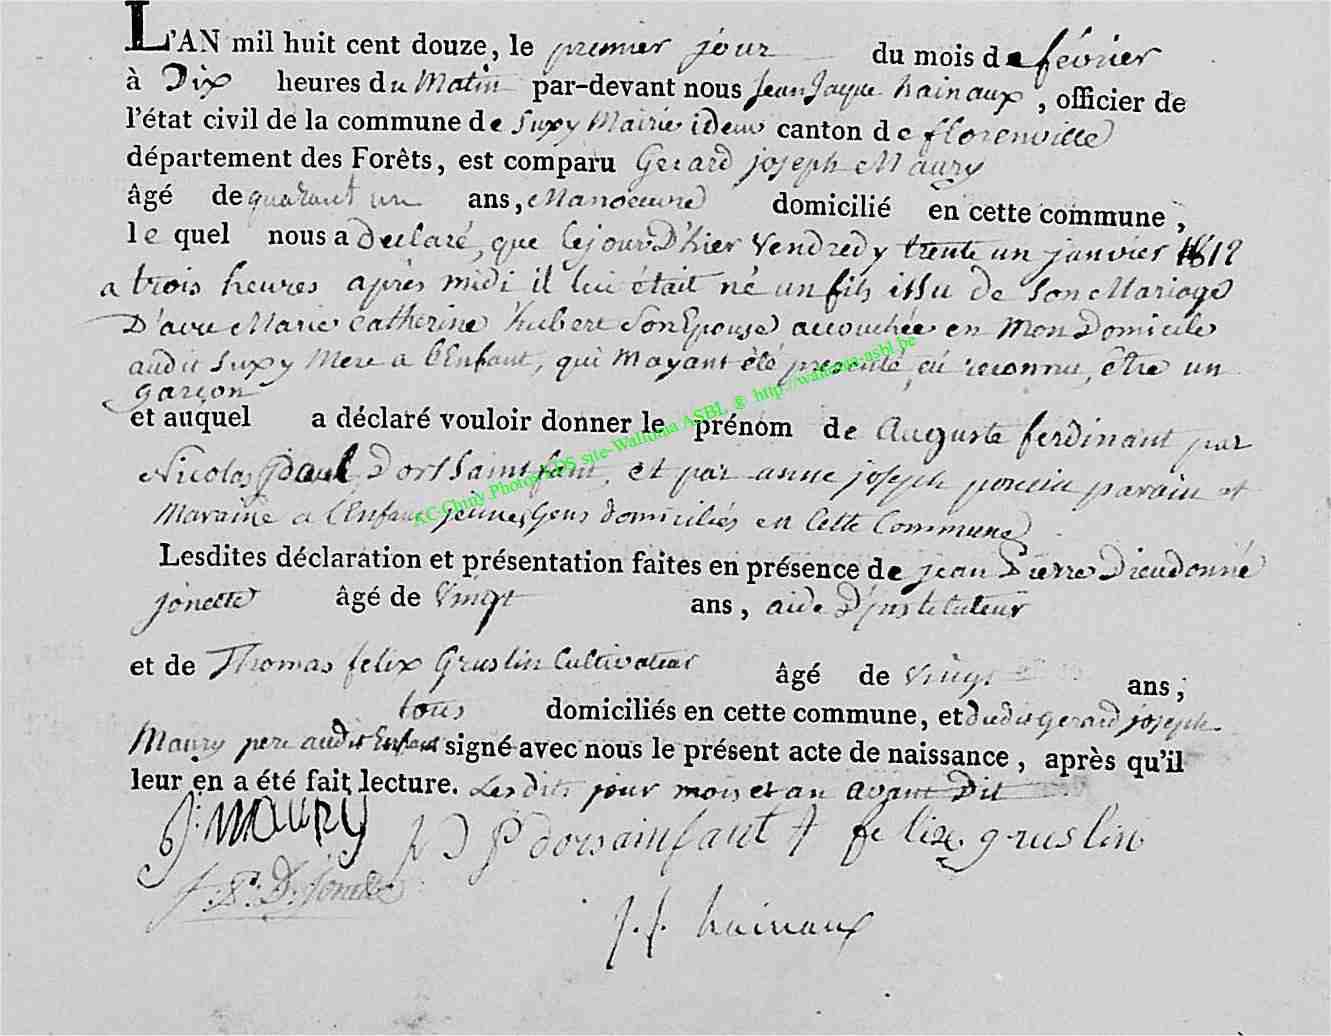 L'AN mil huit cent douze, le premier jour du mois de février
à Dix heures du Matin par-devant nous Jean Jaque hainaux, officier de
l'état civil de la commune de Suxy Mairie idem canton de florenville
département des Forêts, est comparu Gerard joseph Maury
âgé de quarant un ans, Manoeuvre domicilié en cette commune,
le quel nous a déclaré, que le jour D'hier Vendredy trente un janvier 1812
a trois heures après midi il lui était né un fils issu de Son Mariage
D'avec Marie Catherine hubert Son Epouse accouchée en Mon Domicile
audit Suxy Mere a l'Enfant, qui Mayant été presenté, ai reconnu, être un
garçon
et auquel a déclaré vouloir donner le prénom de Auguste ferdinant par
Nicolas paul Dorssaintfant, et par anne joseph poncin parain et
Maraine a l'Enfant jeunes Gens domiciliés en Cette Commune
Lesdites déclaration et présentation faites en présence de jean Pierre Dieudonné
jonette âgé de Vingt ans, aide D'jnstituteur
et de Thomas felix Gruslin Cultivateur âgé de Vingt ans,
tous domiciliés en cette commune, et dudit gerard joseph
Maury pere audit Enfant signé avec nous le présent acte de naissance, après qu'il
leur en a été fait lecture. Lesdits jour mois et an avant Dit
g: maury
P dorsainfant
felix gruslin
J: P: D: Jonette
J. J. hainaux
AC-Chuny Photos GDS site-Wallonia ASBL @ http://wallonia-asbl.be